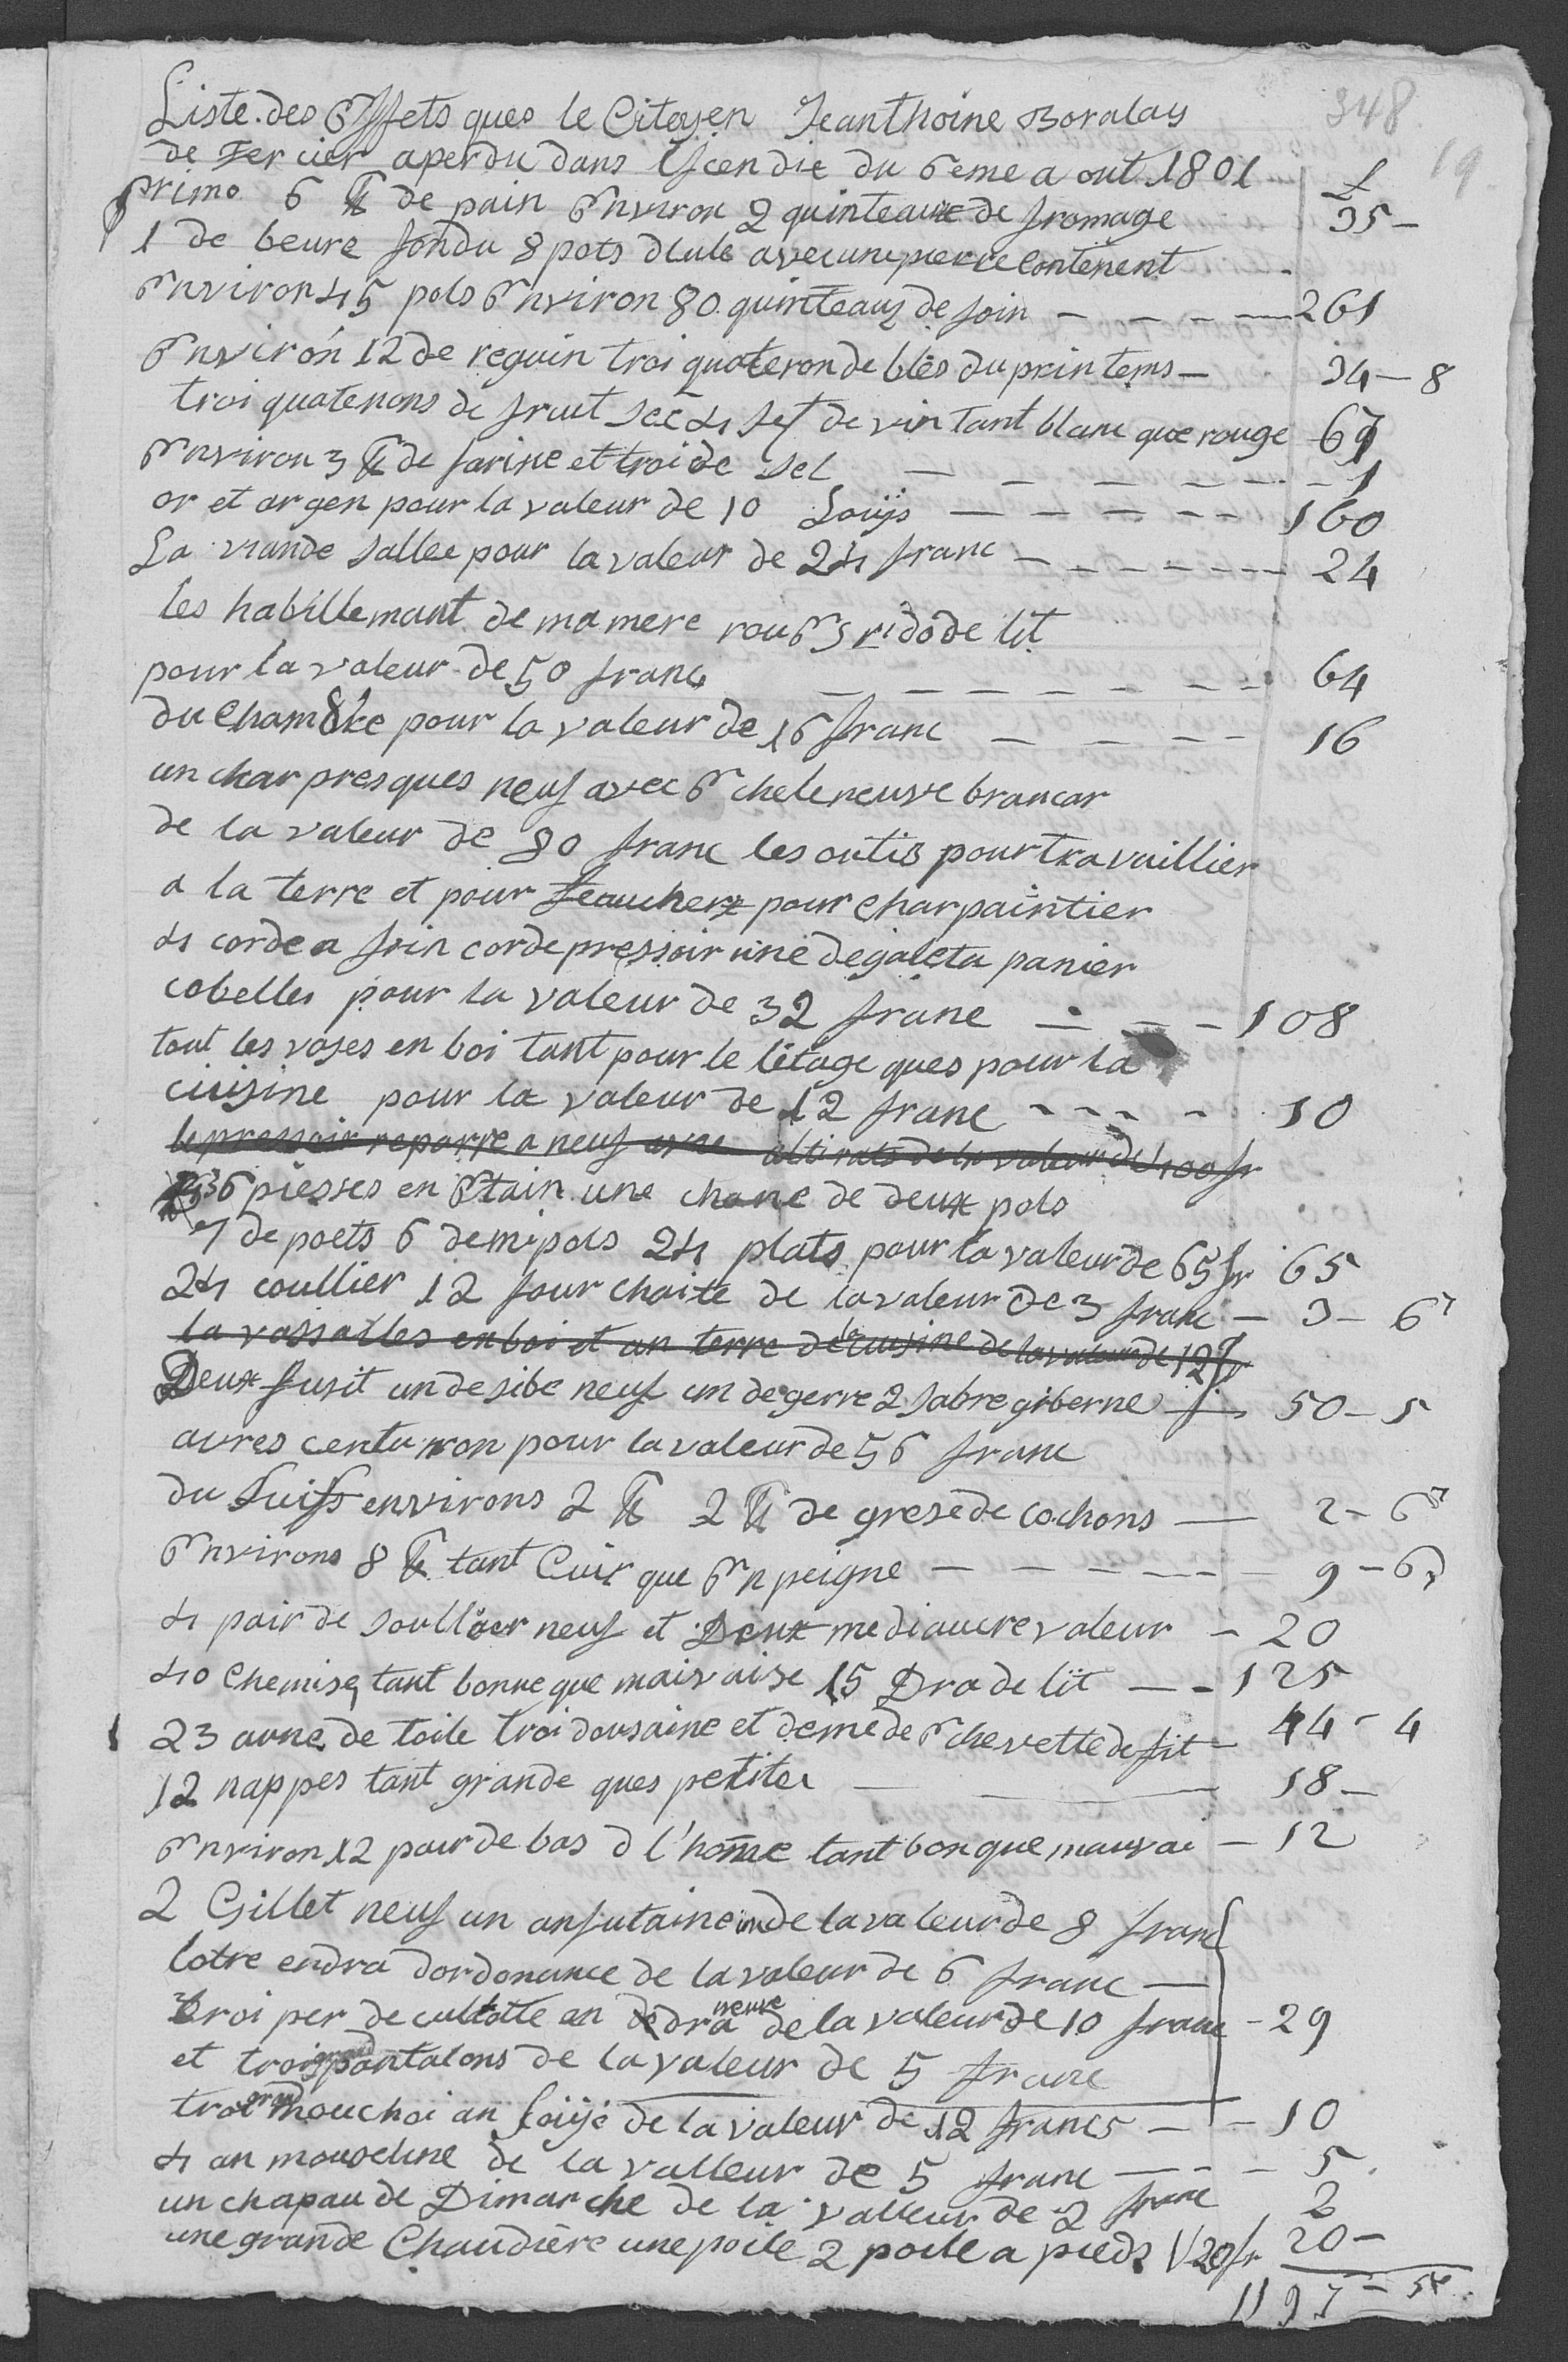 348
19
Liste des Effets ques le Citoyen Jeanthoine Boralay
de Fercier aperdu dans lscendie du 6eme a out 1801 £
primo 6 ℔ de pain Environ 2 quinteaux de fromage 35 -
1 de beure fondu 8 pots dLule avec une pierre Contenent
Environ 45 pots Environ 80 quinteaux de foin - - - - 261
Environ 12 de reguin troi quateron de blés du printems - 34 - 8
troi quaterons de fruit sec 4 set de vin tant blanc que rouge 67
Environ 3 ℔ de farine et troi de sel - - - - - - 1
or et argen pour la valeur de 10 Louijs - - - - - 160
La viande sallee pour la valeur de 24 franc - - - - - - 24
les habillemant de ma mere rouEs ridode lit
pour la valeur de 50 franc - - - - - - - 64
du Chambre pour la valeur de 16 franc - - - - 16
un char presques neuf avec Echele neuve brancar
de la valeur de 80 franc les outis pour travaillier
a la terre et pour feaucher pour Charpaintier
4 corde a foin corde pressoir une de galeta panier
cobelles pour la valeur de 32 franc - - - 108
tout les vases en boi tant pour le létage ques pour la
cuisine pour la valeur de 12 franc - - - - 10
le pressoir reparre a neuf avec attirats de la valeur de 100 fr
36 piesses en Etain une chane de deux pots
7 de poets 6 demipots 24 plats pour la valeur de 65 fr 65
24 coullier 12 four chaite de la valeur de 3 franc - 3 - 6
la vassalles en boi et an terre de la cuisine de la valeur de 12 fr
Deux fusit un de sibe neuf un de gerre 2 sabre giberne - 50 - 5
avres centuron pour la valeur de 56 franc
du Suiff environs 2 ℔ 2 ℔ de grese de cochons - 2 - 6
Environs 8 ℔ tant Cuir que En peigne - - - - - - 9 - 6
4 pair de soullier neuf et Deux mediaucre valeur - 20
40 Chemise tant bonne que maisvaise 15 Dra de lit - - 125
23 aune de toile troi dousaine et deme de Echevette de fit - 44 - 4
12 nappes tant grande ques petites - 18 -
Environ 12 pair de bas d l'home tant bon que mauvai - 12
2 Gillet neuf un an futaine de la valeur de 8 franc
lotre en dra dordonance de la valeur de 6 franc -
troi per de cullotte an dra neuve de la valeur de 10 franc - 29
et troi grand pantalons de la valeur de 5 franc
troi grand mouchoi an soijé de la valeur de 12 francs - - 10
4 an mouseline de la valleur de 5 franc - - - 5
un chapau de Dimarche de la valleur de 2 franc 2
une grande Chaudière une poile 2 poile a pieds 20 fr 20 -
1197 -